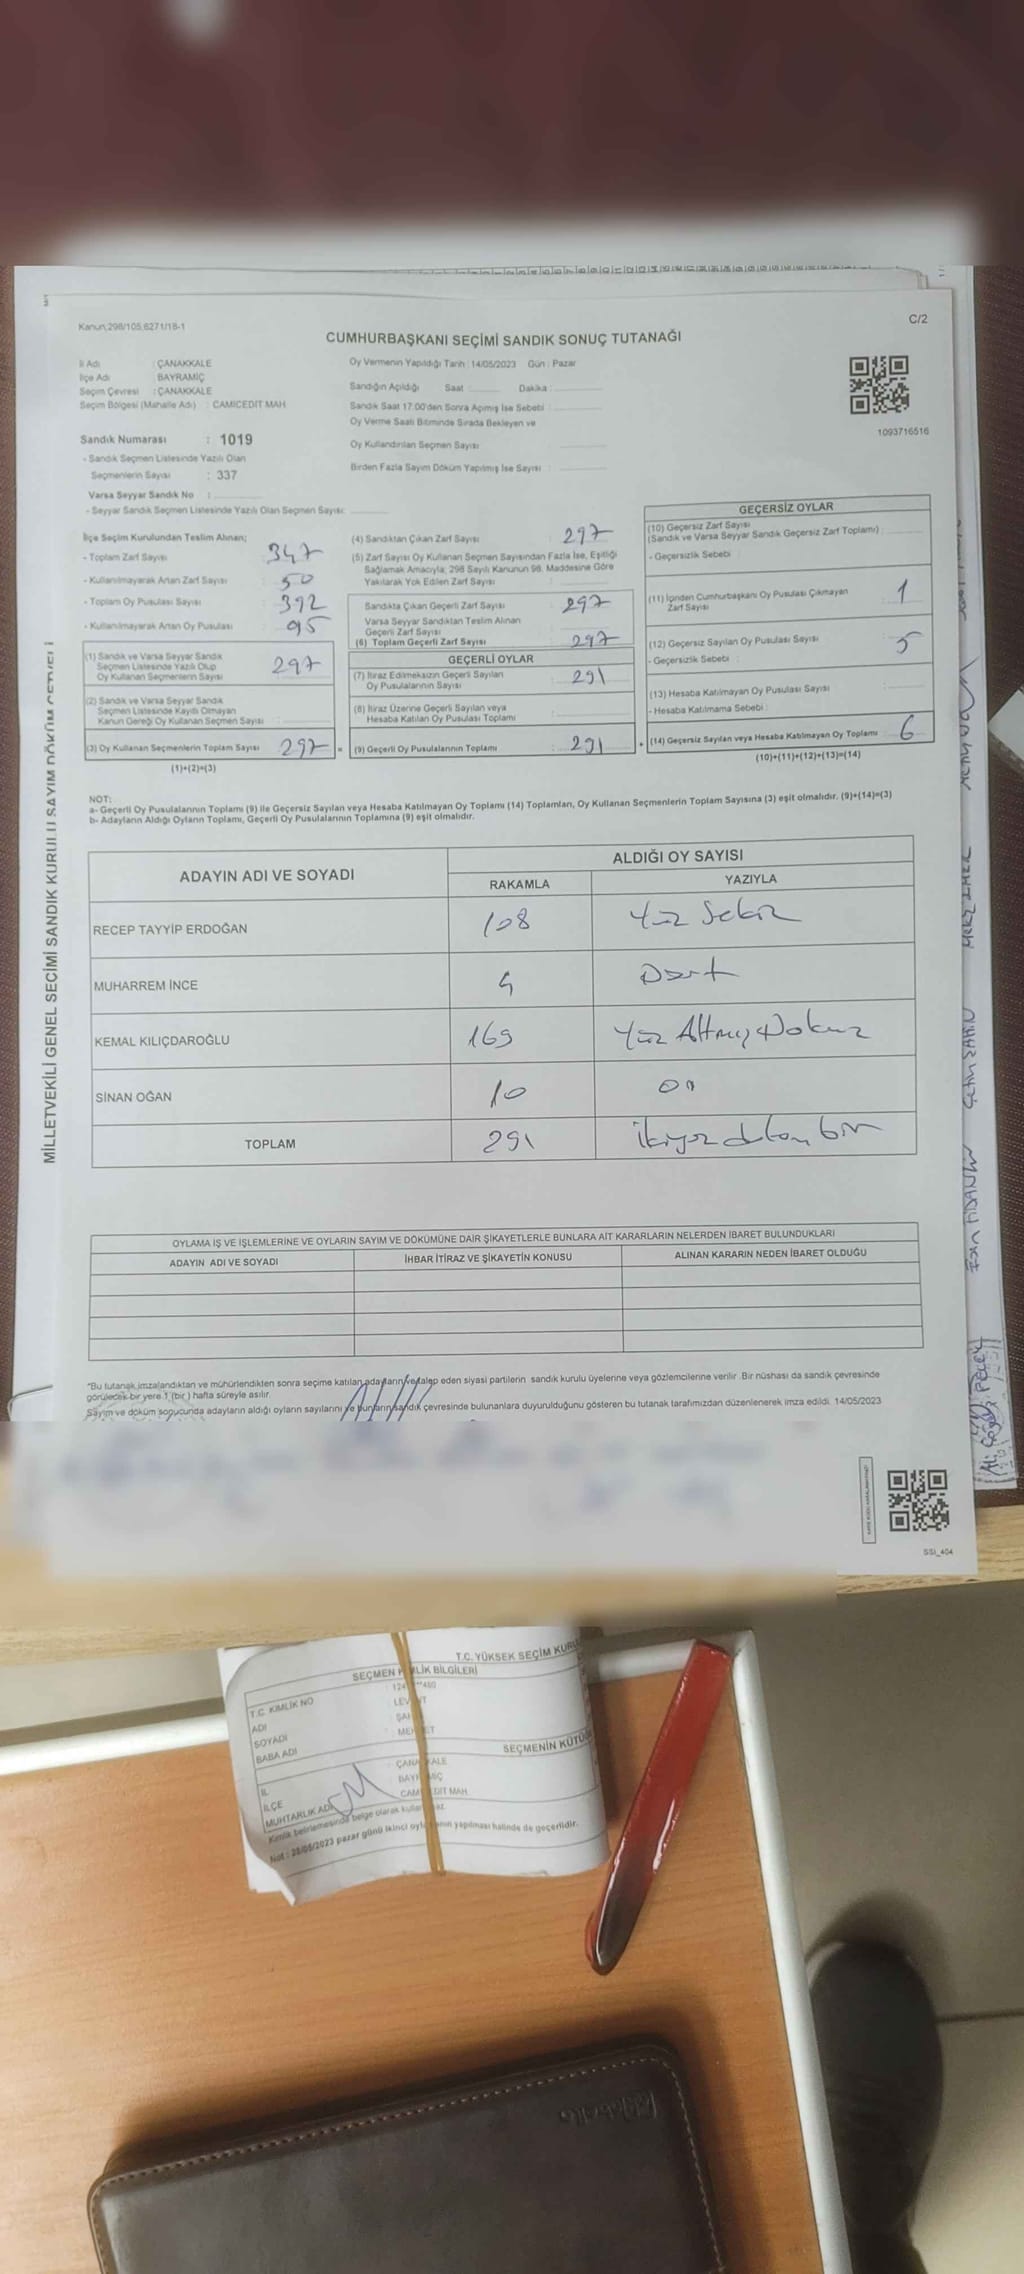 Kanun,298/105,6271/18-1
C/2
CUMHURBAŞKANI SEÇİMİ SANDIK SONUÇ TUTANAĞI
İl Adı : ÇANAKKALE
İlçe Adı : BAYRAMİÇ
Seçim Çevresi : ÇANAKKALE
Seçim Bölgesi (Mahalle Adı) : CAMİCEDİT MAH
Sandık Numarası : 1019
- Sandık Seçmen Listesinde Yazılı Olan
Seçmenlerin Sayısı : 337
Varsa Seyyar Sandık No :
- Seyyar Sandık Seçmen Listesinde Yazılı Olan Seçmen Sayısı:
Oy Vermenin Yapıldığı Tarih : 14/05/2023 Gün : Pazar
Sandığın Açıldığı Saat : Dakika :
Sandık Saat 17.00'den Sonra Açımış İse Sebebi :
Oy Verme Saati Bitiminde Sırada Bekleyen ve
Oy Kullandırılan Seçmen Sayısı
Birden Fazla Sayım Döküm Yapılmış İse Sayısı :
1093716516
İlçe Seçim Kurulundan Teslim Alınan;
- Toplam Zarf Sayısı : 347
- Kullanılmayarak Artan Zarf Sayısı : 50
- Toplam Oy Pusulası Sayısı : 392
- Kullanılmayarak Artan Oy Pusulası : 95
(1) Sandık ve Varsa Seyyar Sandık
Seçmen Listesinde Yazılı Olup
Oy Kullanan Seçmenlerin Sayısı : 297
(2) Sandık ve Varsa Seyyar Sandık
Seçmen Listesinde Kayıtlı Olmayan
Kanun Gereği Oy Kullanan Seçmen Sayısı :
(3) Oy Kullanan Seçmenlerin Toplam Sayısı : 297 =
(1)+(2)=(3)
(4) Sandıktan Çıkan Zarf Sayısı : 297
(5) Zarf Sayısı Oy Kullanan Seçmen Sayısından Fazla İse, Eşitliği
Sağlamak Amacıyla; 298 Sayılı Kanunun 98. Maddesine Göre
Yakılarak Yok Edilen Zarf Sayısı :
Sandıkta Çıkan Geçerli Zarf Sayısı : 297
Varsa Seyyar Sandıktan Teslim Alınan
Geçerli Zarf Sayısı :
(6) Toplam Geçerli Zarf Sayısı : 297
GEÇERLİ OYLAR
(7) İtiraz Edilmeksizin Geçerli Sayılan
Oy Pusulalarının Sayısı : 291
(8) İtiraz Üzerine Geçerli Sayılan veya
Hesaba Katılan Oy Pusulası Toplamı :
(9) Geçerli Oy Pusulalarının Toplamı : 291 +
GEÇERSİZ OYLAR
(10) Geçersiz Zarf Sayısı
(Sandık ve Varsa Seyyar Sandık Geçersiz Zarf Toplamı) :
- Geçersizlik Sebebi :
(11) İçinden Cumhurbaşkanı Oy Pusulası Çıkmayan
Zarf Sayısı : 1
(12) Geçersiz Sayılan Oy Pusulası Sayısı : 5
- Geçersizlik Sebebi :
(13) Hesaba Katılmayan Oy Pusulası Sayısı :
- Hesaba Katılmama Sebebi :
(14) Geçersiz Sayılan veya Hesaba Katılmayan Oy Toplamı : 6
(10)+(11)+(12)+(13)=(14)
NOT:
a- Geçerli Oy Pusulalarının Toplamı (9) ile Geçersiz Sayılan veya Hesaba Katılmayan Oy Toplamı (14) Toplamları, Oy Kullanan Seçmenlerin Toplam Sayısına (3) eşit olmalıdır. (9)+(14)=(3)
b- Adayların Aldığı Oyların Toplamı, Geçerli Oy Pusulalarının Toplamına (9) eşit olmalıdır.
ADAYIN ADI VE SOYADI
ALDIĞI OY SAYISI
RAKAMLA YAZIYLA
RECEP TAYYİP ERDOĞAN 108 Yüz Sekiz
MUHARREM İNCE 4 Dört
KEMAL KILIÇDAROĞLU 169 Yüz Altmış Dokuz
SİNAN OĞAN 10 On
TOPLAM 291 ikiyüz doksan bir
OYLAMA İŞ VE İŞLEMLERİNE VE OYLARIN SAYIM VE DÖKÜMÜNE DAİR ŞİKAYETLERLE BUNLARA AİT KARARLARIN NELERDEN İBARET BULUNDUKLARI
ADAYIN ADI VE SOYADI İHBAR İTİRAZ VE ŞİKAYETİN KONUSU ALINAN KARARIN NEDEN İBARET OLDUĞU
"Bu tutanak,imzalandıktan ve mühürlendikten sonra seçime katılan adayların/ve talep eden siyasi partilerin sandık kurulu üyelerine veya gözlemcilerine verilir. Bir nüshası da sandık çevresinde
görülecek bir yere 1 (bir ) hafta süreyle asılır.
Sayım ve döküm sonucunda adayların aldığı oyların sayılarını ve bunların sandık çevresinde bulunanlara duyurulduğunu gösteren bu tutanak tarafımızdan düzenlenerek imza edildi. 14/05/2023
SSI_404
MİLLETVEKİLİ GENEL SEÇİMİ SANDIK KURULU SAYIM DÖKÜM
ÇETİN ŞAHİN
T.C. YÜKSEK SEÇİM KURU
SEÇMEN KİMLİK BİLGİLERİ
T.C. KİMLİK NO
ADI
SOYADI
BABA ADI
SEÇMENİN KÜTÜĞ
İL : ÇANAKKALE
İLÇE BAYRAMİÇ
MUHTARLIK ADI CAMİCEDİT MAH.
Kimlik belirlemesinde belge olarak kullanılmaz.
Not : 28/05/2023 pazar günü ikinci oylamanın yapılması halinde de geçerlidir.